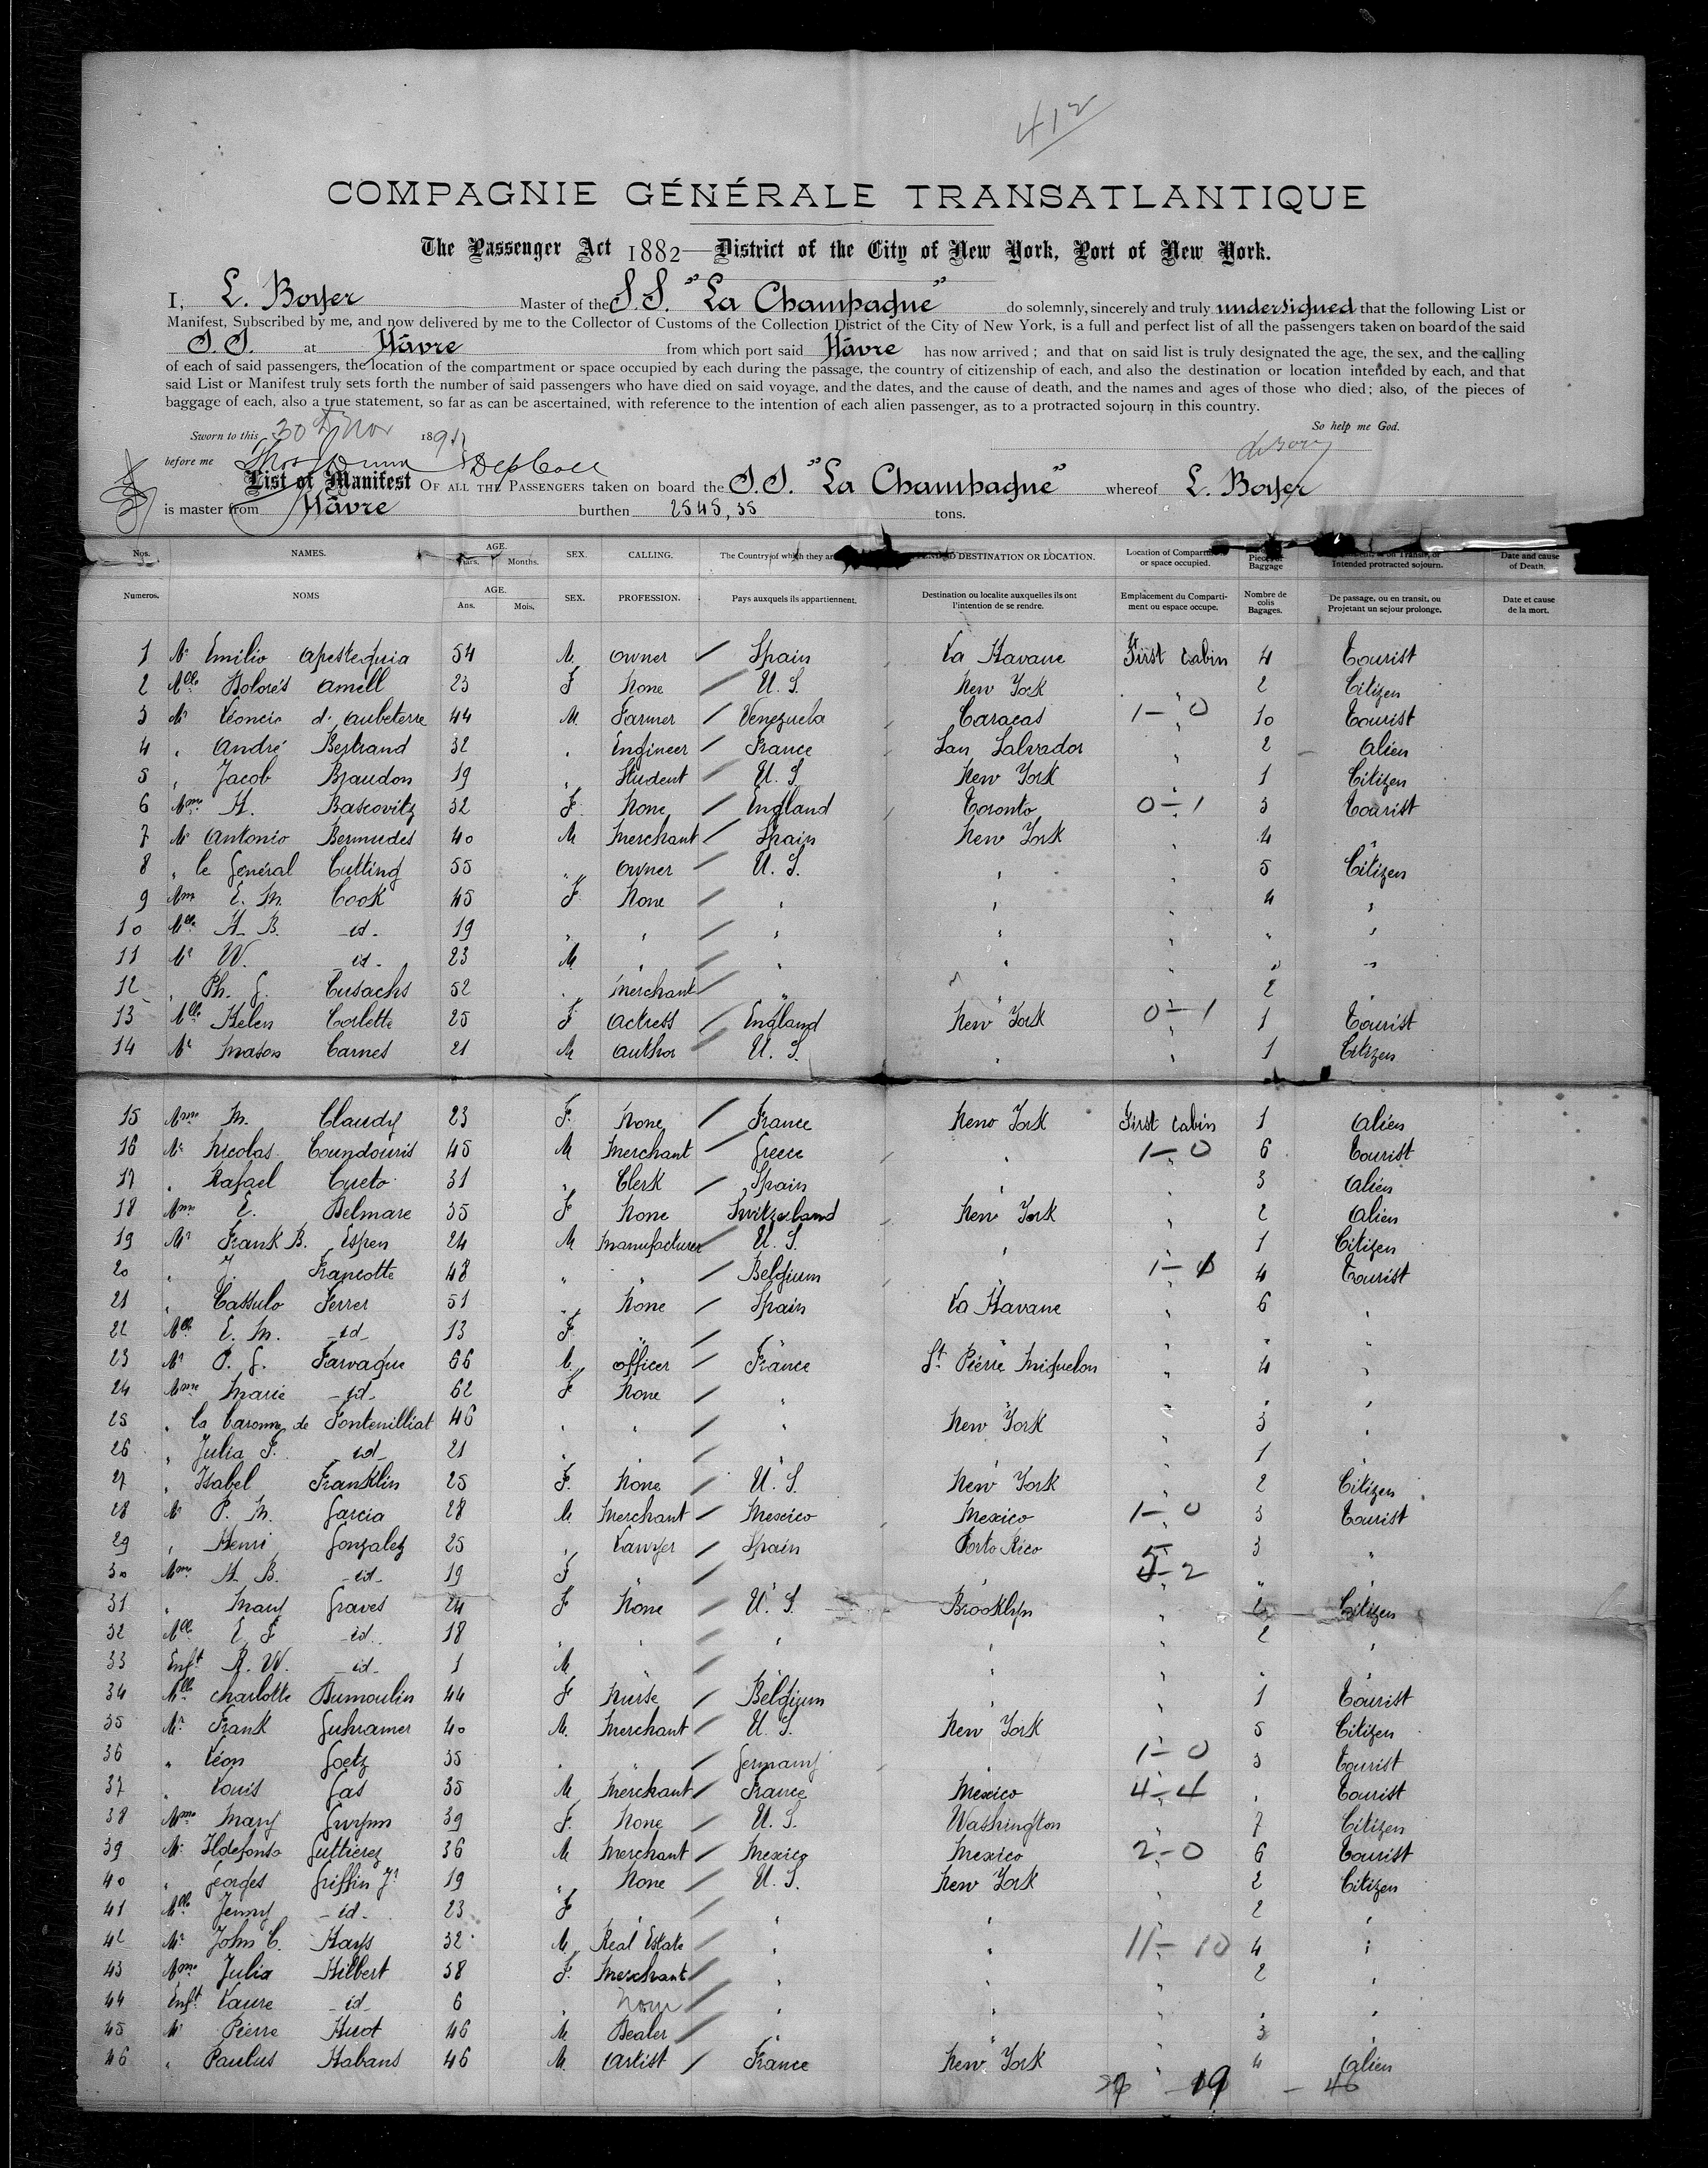 412
COMPAGNIE GÉNÉRALE TRANSATLANTIQUE
The Passenger Act 1882—District of the City of New York, Port of New York.
I, L. Boyer Master of the S.S. "La Champagne" do solemnly, sincerely and truly undersigned that the following List or
Manifest, Subscribed by me, and now delivered by me to the Collector of Customs of the Collection District of the City of New York, is a full and perfect list of all the passengers taken on board of the said
S.S. at Hâvre from which port said Hâvre has now arrived; and that on said list is truly designated the age, the sex, and the calling
of each of said passengers, the location of the compartment or space occupied by each during the passage, the country of citizenship of each, and also the destination or location intended by each, and that
said List or Manifest truly sets forth the number of said passengers who have died on said voyage, and the dates, and the cause of death, and the names and ages of those who died; also, of the pieces of
baggage of each, also a true statement, so far as can be ascertained, with reference to the intention of each alien passenger, as to a protracted sojourn in this country.
Sworn to this 30th Nov 189 So help me God.
before me
List of Manifest OF ALL THE PASSENGERS taken on board the S.S. "La Champagne" whereof L. Boyer
is master from Hâvre burthen 2545,55 tons.
Nos. NAMES. AGE. Months. SEX. CALLING. The Country of which they DESTINATION OR LOCATION. Location of Compartment or space occupied. Pieces of Baggage Intended protracted sojourn. Date and cause of Death.
Numeros. NOMS AGE. Ans. Mois. SEX. PROFESSION. Pays auxquels ils appartiennent. Destination ou localite auxquelles ils ont l'intention de se rendre. Emplacement du Comparti-ment ou espace occupe. Nombre de colis Bagages. De passage, ou en transit, ou Projetant un sejour prolonge. Date et cause de la mort.
1 Mr Emilio Apesteguia 54 M. Owner / Spain La Havane First Cabin 4 Tourist
2 Mlle Dolorés Amell 23 F None / U. S. New York " 2 Citizen
3 Mr Léoncio d'Aubeterre 44 M. Farmer / Venezuela Caracas 1—0 10 Tourist
4 " André Bertrand 32 " Engineer / France San Salvador " 2 Alien
5 " Jacob Braudon 19 " Student / U. S. New York " 1 Citizen
6 Mme H. Bascovitz 32 F. None / England Toronto 0—1 3 Tourist
7 Mr Antonio Bermudés 40 M Merchant / Spain New York " 4 "
8 " le Général Cutting 55 " Owner / U. S. " " 5 Citizen
9 Mme E. M. Cook 45 F None / " " " 4 "
10 Mlle H. B. id. 19 " " / " " " " "
11 Mr W. id. 23 M. " / " " " " "
12 " Ph. G. Cusachs 52 " Merchant / " " " 2 "
13 Mlle Helen Corlette 25 F Actress / England New York 0—1 1 Tourist
14 Mr Mason Carnes 21 M Author / U. S. " " 1 Citizen
15 Mme M. Claudy 23 F. None / France New York First Cabin 1 Alien
16 Mr Nicolas Coundouris 45 M Merchant / Greece " 1—0 6 Tourist
17 " Rafael Cueto 31 " Clerk / Spain " " 3 Alien
18 Mme E. Delmare 35 F None Switzerland New York " 2 Alien
19 Mr Frank B. Espen 24 M Manufacturer / U. S. " " 1 Citizen
20 " J. Francotte 48 " " / Belgium 4 Tourist
21 " Cassulo Ferrer 51 " None / Spain La Havane " 6 "
22 Mlle E. M. id 13 F. " / " " " " "
23 Mr P. G. Farvaque 66 M. Officer / France St. Pierre Miquelon " 4 "
24 Mme Marie id. 62 F None / " " " "
25 " la baronne de Fontenilliat 46 " " " New York " 3 "
26 " Julia F. id 21 " " / " " " 1 "
27 " Isabel Franklin 25 F. None / U. S. New York " 2 Citizen
28 Mr P. M. Garcia 28 M. Merchant / Mexico Mexico 1—0 3 Tourist
29 " Henri Gonzalez 25 " Lawyer / Spain Porto Rico 3 "
30 Mme H. B. id. 19 F " / " " 5—2 " "
31 " Mary Graves 24 F None / U. S. Brooklyn " 2 Citizen
32 Mlle E. F. id. 18 " " / " " " 2 "
33 Enft R. W. id. 1 M " / " " " "
34 Mlle Charlotte Dumoulin 44 F Nurse / Belgium " " 1 Tourist
35 Mr Frank Guhramer 40 M. Merchant / U. S. New York 5 Citizen
36 " Léon Goetz 35 " " / Germany " 1—0 3 Tourist
37 " Louis Gas 35 M Merchant / France Mexico 4—4 " Tourist
38 Mme Mary Gwynn 39 F. None / U. S. Washington " 7 Citizen
39 Mr Ildefonso Guttierez 36 M Merchant / Mexico Mexico 2—0 6 Tourist
40 " Georges Griffin Jr 19 " None / U. S. New York " 2 Citizen
41 Mlle Jenny id. 23 F " " " 2 "
42 Mr John C. Hays 32 M. Real Estate " " 11—10 4 "
43 Mme Julia Hilbert 38 F. Merchant / " " " 2 "
44 Enft Laure id 6 " None / " " " " "
45 Mr Pierre Huot 46 M Dealer / " " " 3 "
46 " Paulus Habans 46 M. Artist / France New York " 4 Alien
27 — 19 — 46